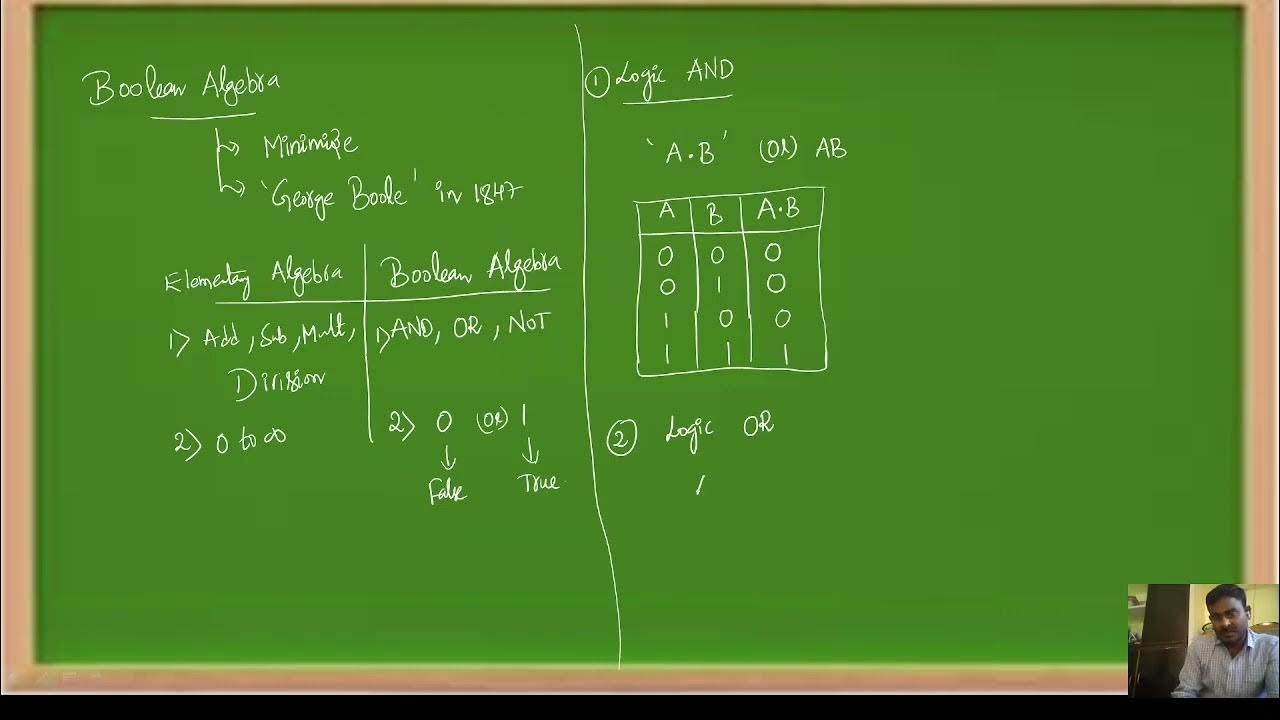 Boolean Algebra
Minimize
'George Boole' in 1847
Elementary Algebra | Boolean Algebra
1> Add, Sub, Mult, | 1> AND, OR, NOT
Division
2> 0 to ∞ | 2> 0 (or) 1
False True
① Logic AND
'A.B' (or) AB
A B A.B
0 0 0
0 1 0
1 0 0
1 1 1
② Logic OR